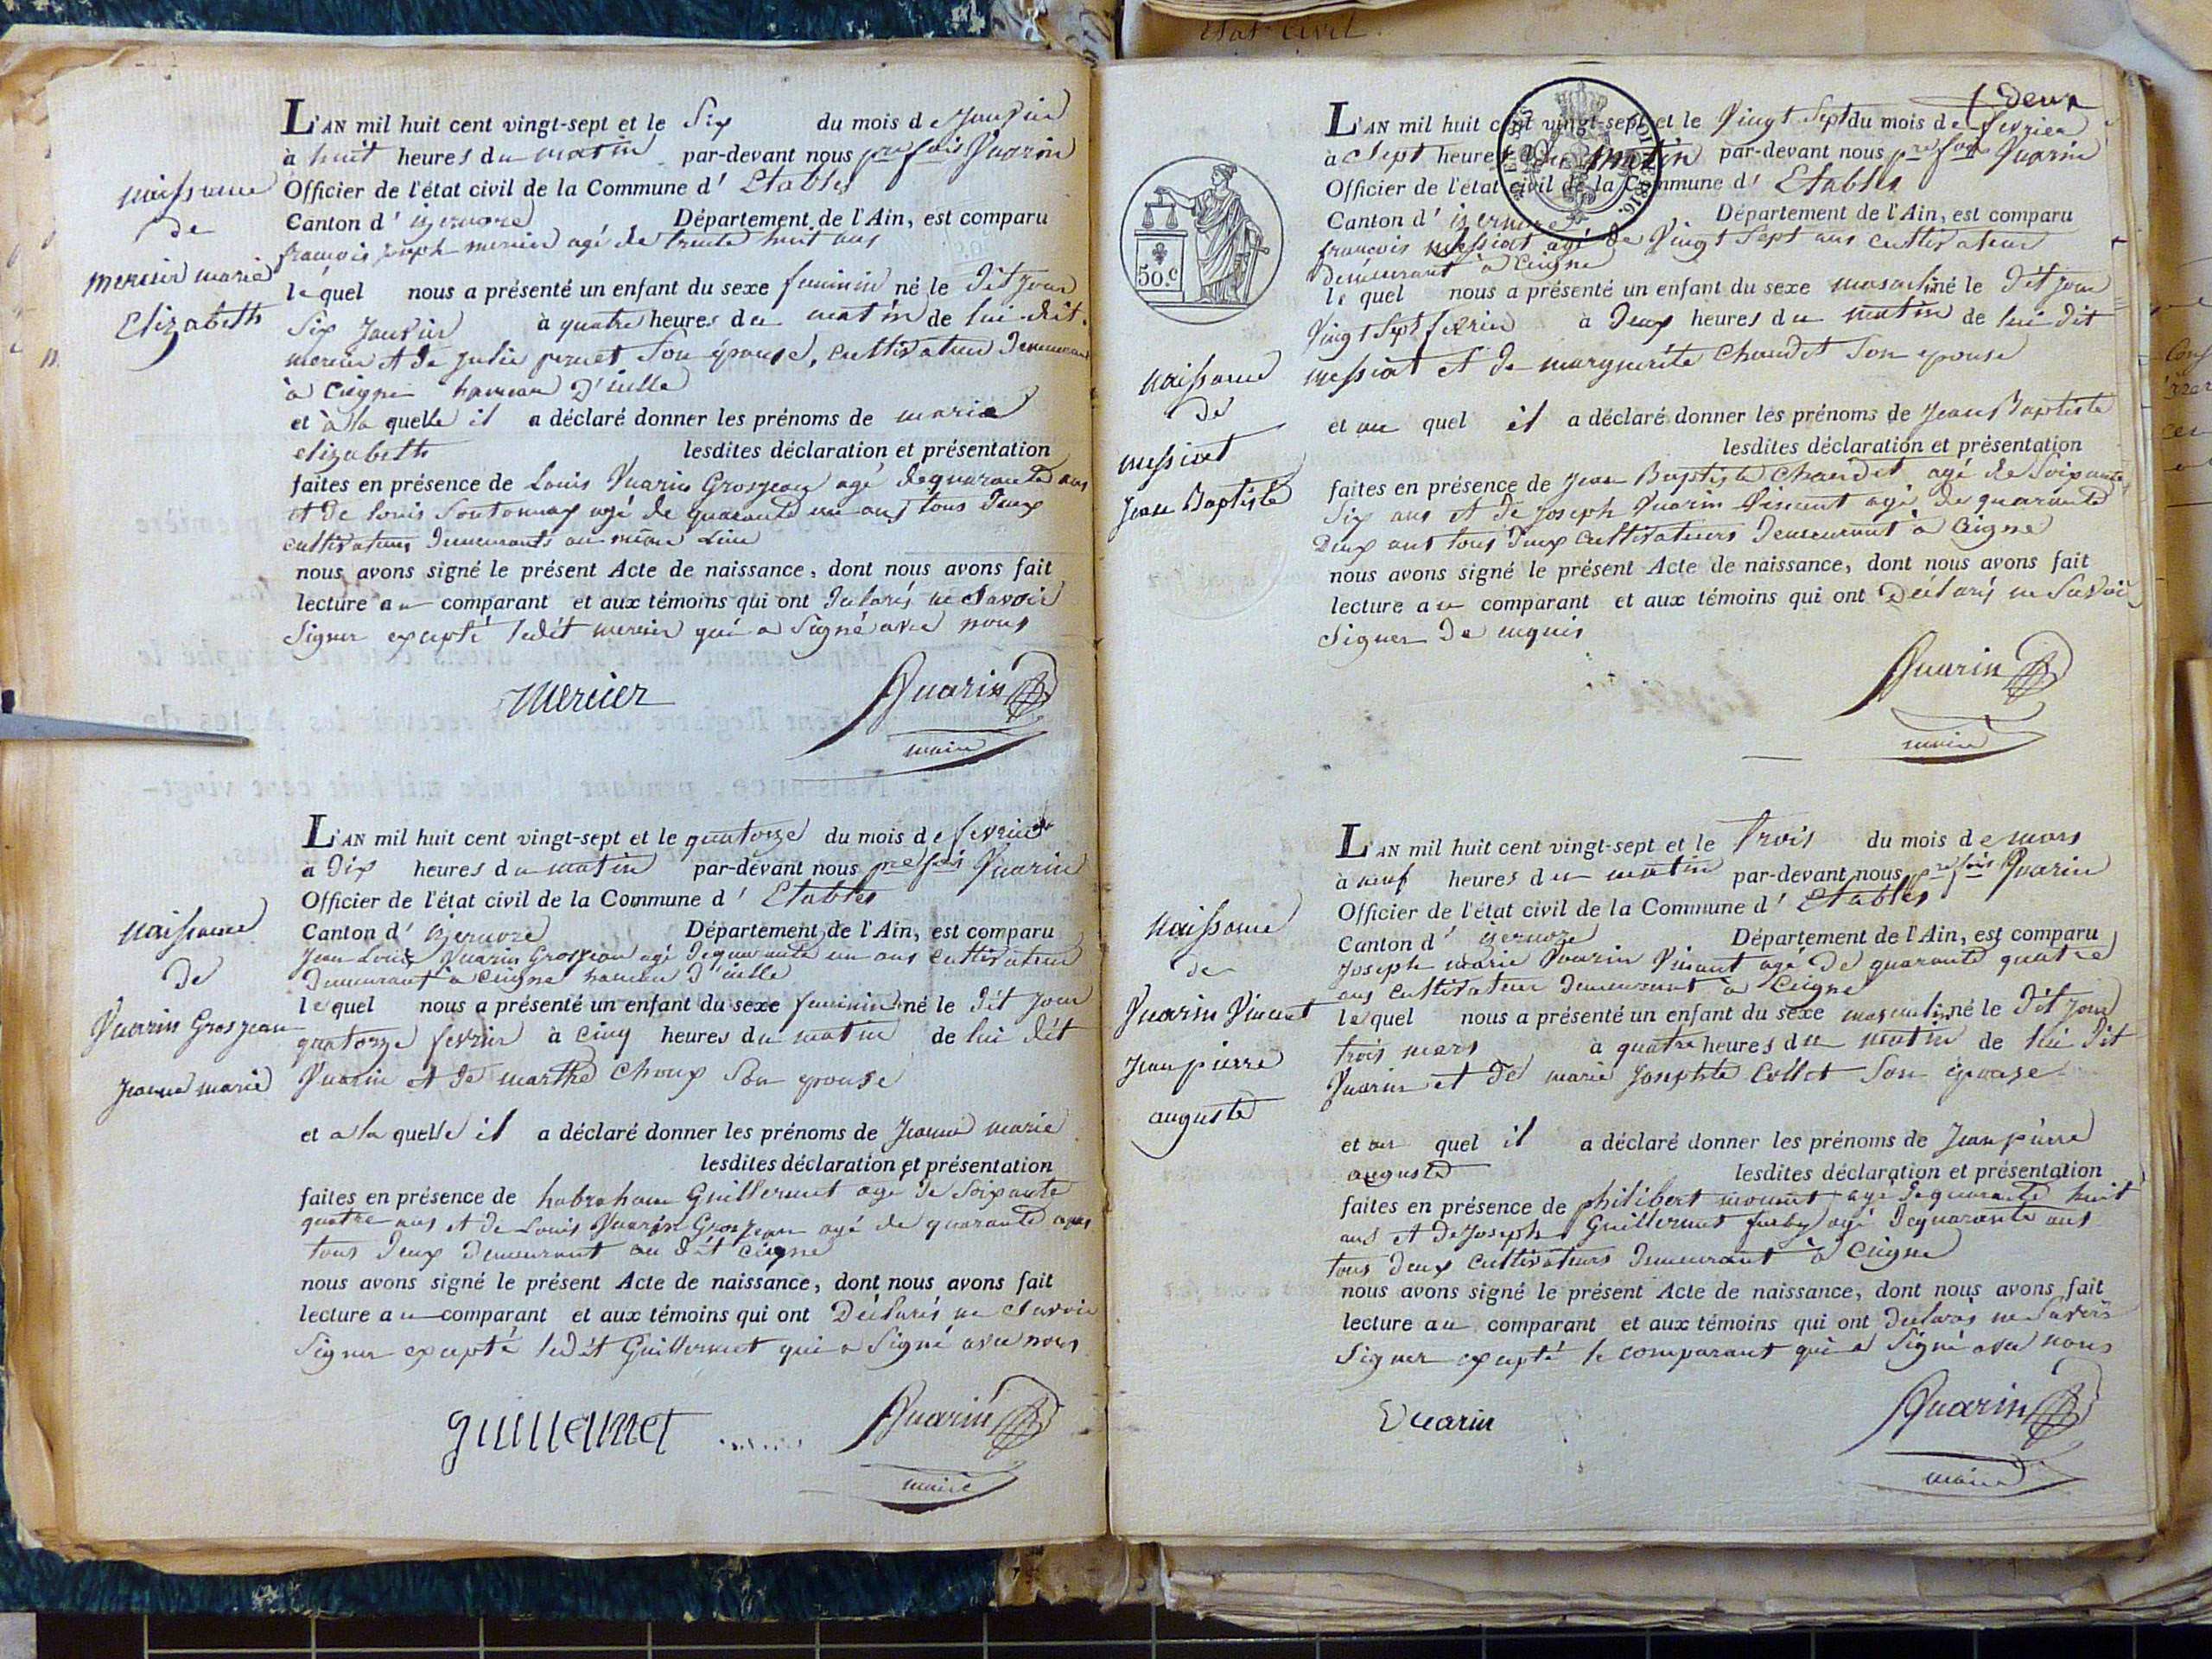 Etat Civil.
naissance
de
mercier marie
Elizabeth
L'AN mil huit cent vingt-sept et le Six du mois de Janvier
à huit heures du matin par-devant nous pre fois Vuarin
Officier de l'état civil de la Commune d' Etables
Canton d' izernore Département de l'Ain, est comparu
françois joseph mercier agé de trente huit ans
lequel nous a présenté un enfant du sexe feminin né le dit jour
Six Janvier à quatre heures du matin de lui dit
mercier et de julie perret son épouse, cultivateur demeurant
à Ceigne hameau d'icelle
et à la quelle il a déclaré donner les prénoms de marie
elizabeth lesdites déclaration et présentation
faites en présence de Louis Vuarin Grosjean agé de quarante ans
et de louis agé de quarante un ans tous deux
cultivateurs demeurants au même Lieu
nous avons signé le présent Acte de naissance, dont nous avons fait
lecture au comparant et aux témoins qui ont declarés ne Savoir
Signer excepté ledit mercier qui a Signé avec nous
mercier Vuarin
maire
naissance
de
Vuarin Grosjean
jeanne marie
L'AN mil huit cent vingt-sept et le quatorze du mois de fevrier
à Dix heures du matin par-devant nous pre fois Vuarin
Officier de l'état civil de la Commune d' Etables
Canton d' izernore Département de l'Ain, est comparu
Jean Louis Vuarin Grosjean agé de quarante un ans cultivateur
demeurant à Ceigne hameau d'icelle
lequel nous a présenté un enfant du sexe feminin né le dit jour
quatorze fevrier à cinq heures du matin de lui dit
Vuarin et de marthe Choux Son epouse
et a la quelle il a déclaré donner les prénoms de jeanne marie
lesdites déclaration et présentation
faites en présence de habraham Guillermet agé de Soixante
quatre ans et de Louis Vuarin Grosjean agé de quarante ans
tous deux demeurant au dit Ceigne
nous avons signé le présent Acte de naissance, dont nous avons fait
lecture au comparant et aux témoins qui ont Déclarés ne Savoir
Signer excepté ledit Guillermet qui a Signé avec nous
guillermet Vuarin
maire
deux
50.c
1816.
naissance
de
messiat
jean Baptiste
L'AN mil huit cent vingt-sept et le Vingt Sept du mois de fevrier
à Sept heures du matin par-devant nous pre fois Vuarin
Officier de l'état civil de la Commune d' Etables
Canton d' izernore Département de l'Ain, est comparu
françois messiat agé de Vingt Sept ans cultivateur
demeurant à Ceigne
lequel nous a présenté un enfant du sexe masculin né le dit jour
Vingt Sept fevrier à Deux heures du matin de lui dit
messiat et de marguerite Chaudet Son epouse
et au quel il a déclaré donner les prénoms de Jean Baptiste
lesdites déclaration et présentation
faites en présence de Jean Baptiste Chaudet agé de Soixante
Six ans et de Joseph Vuarin Vincent agé de quarante
Deux ans tous deux cultivateurs demeurant à Ceigne
nous avons signé le présent Acte de naissance, dont nous avons fait
lecture au comparant et aux témoins qui ont Déclarés ne Savoir
Signer de enquis
Vuarin
maire
naissance
de
Vuarin Vincent
Jean pierre
auguste
L'AN mil huit cent vingt-sept et le trois du mois de mars
à neuf heures du matin par-devant nous pre fois Vuarin
Officier de l'état civil de la Commune d' Etables
Canton d' izernore Département de l'Ain, est comparu
Joseph marie Vuarin Vincent agé de quarante quatre
ans cultivateur demeurant à Ceigne
lequel nous a présenté un enfant du sexe masculin né le dit jour
trois mars à quatre heures du matin de lui dit
Vuarin et de marie Josephte Collet Son épouse
et au quel il a déclaré donner les prénoms de Jean pierre
auguste lesdites déclaration et présentation
faites en présence de philibert agé de quarante huit
ans et de Joseph Guillermet agé de quarante ans
tous deux cultivateurs demeurant à Ceigne
nous avons signé le présent Acte de naissance, dont nous avons fait
lecture au comparant et aux témoins qui ont declarés ne Savoir
Signer excepté le comparant qui a Signé avec nous
Vuarin Vuarin
maire